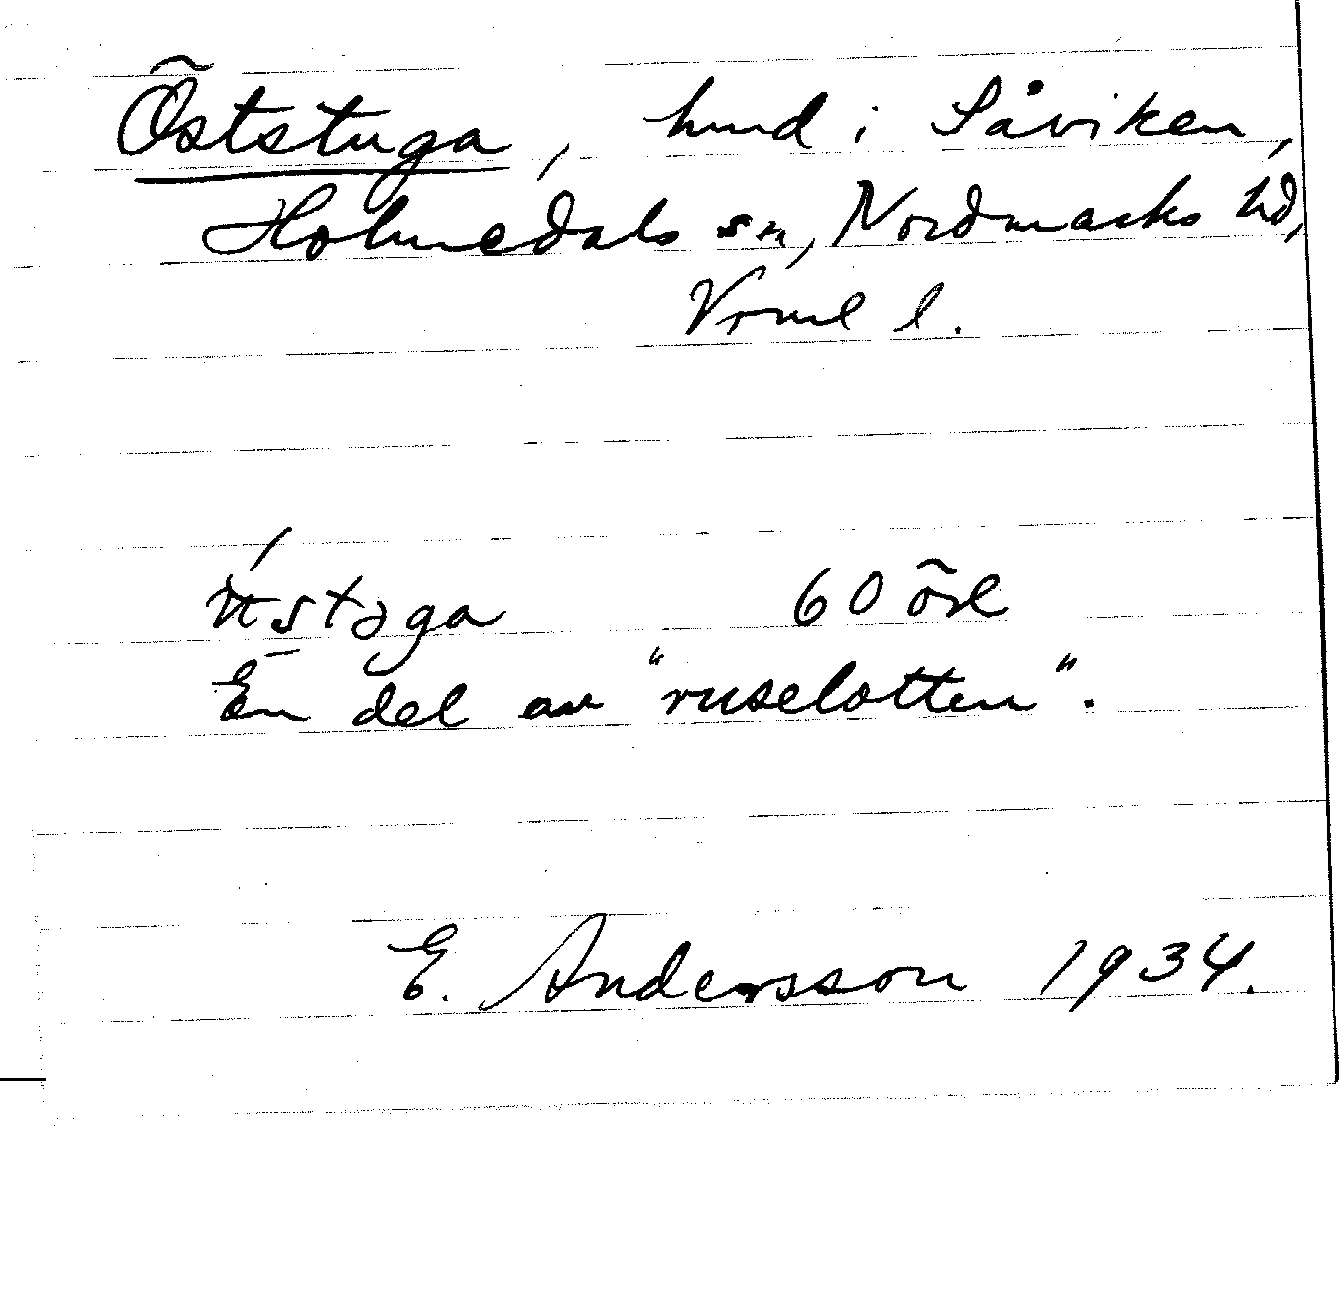 Öststuga, hmd i Såviken,
Holmedals sn, Nordmarks hd,
Vrml l.
60 öre
En del av "ruselotten".
E. Andersson 1934.